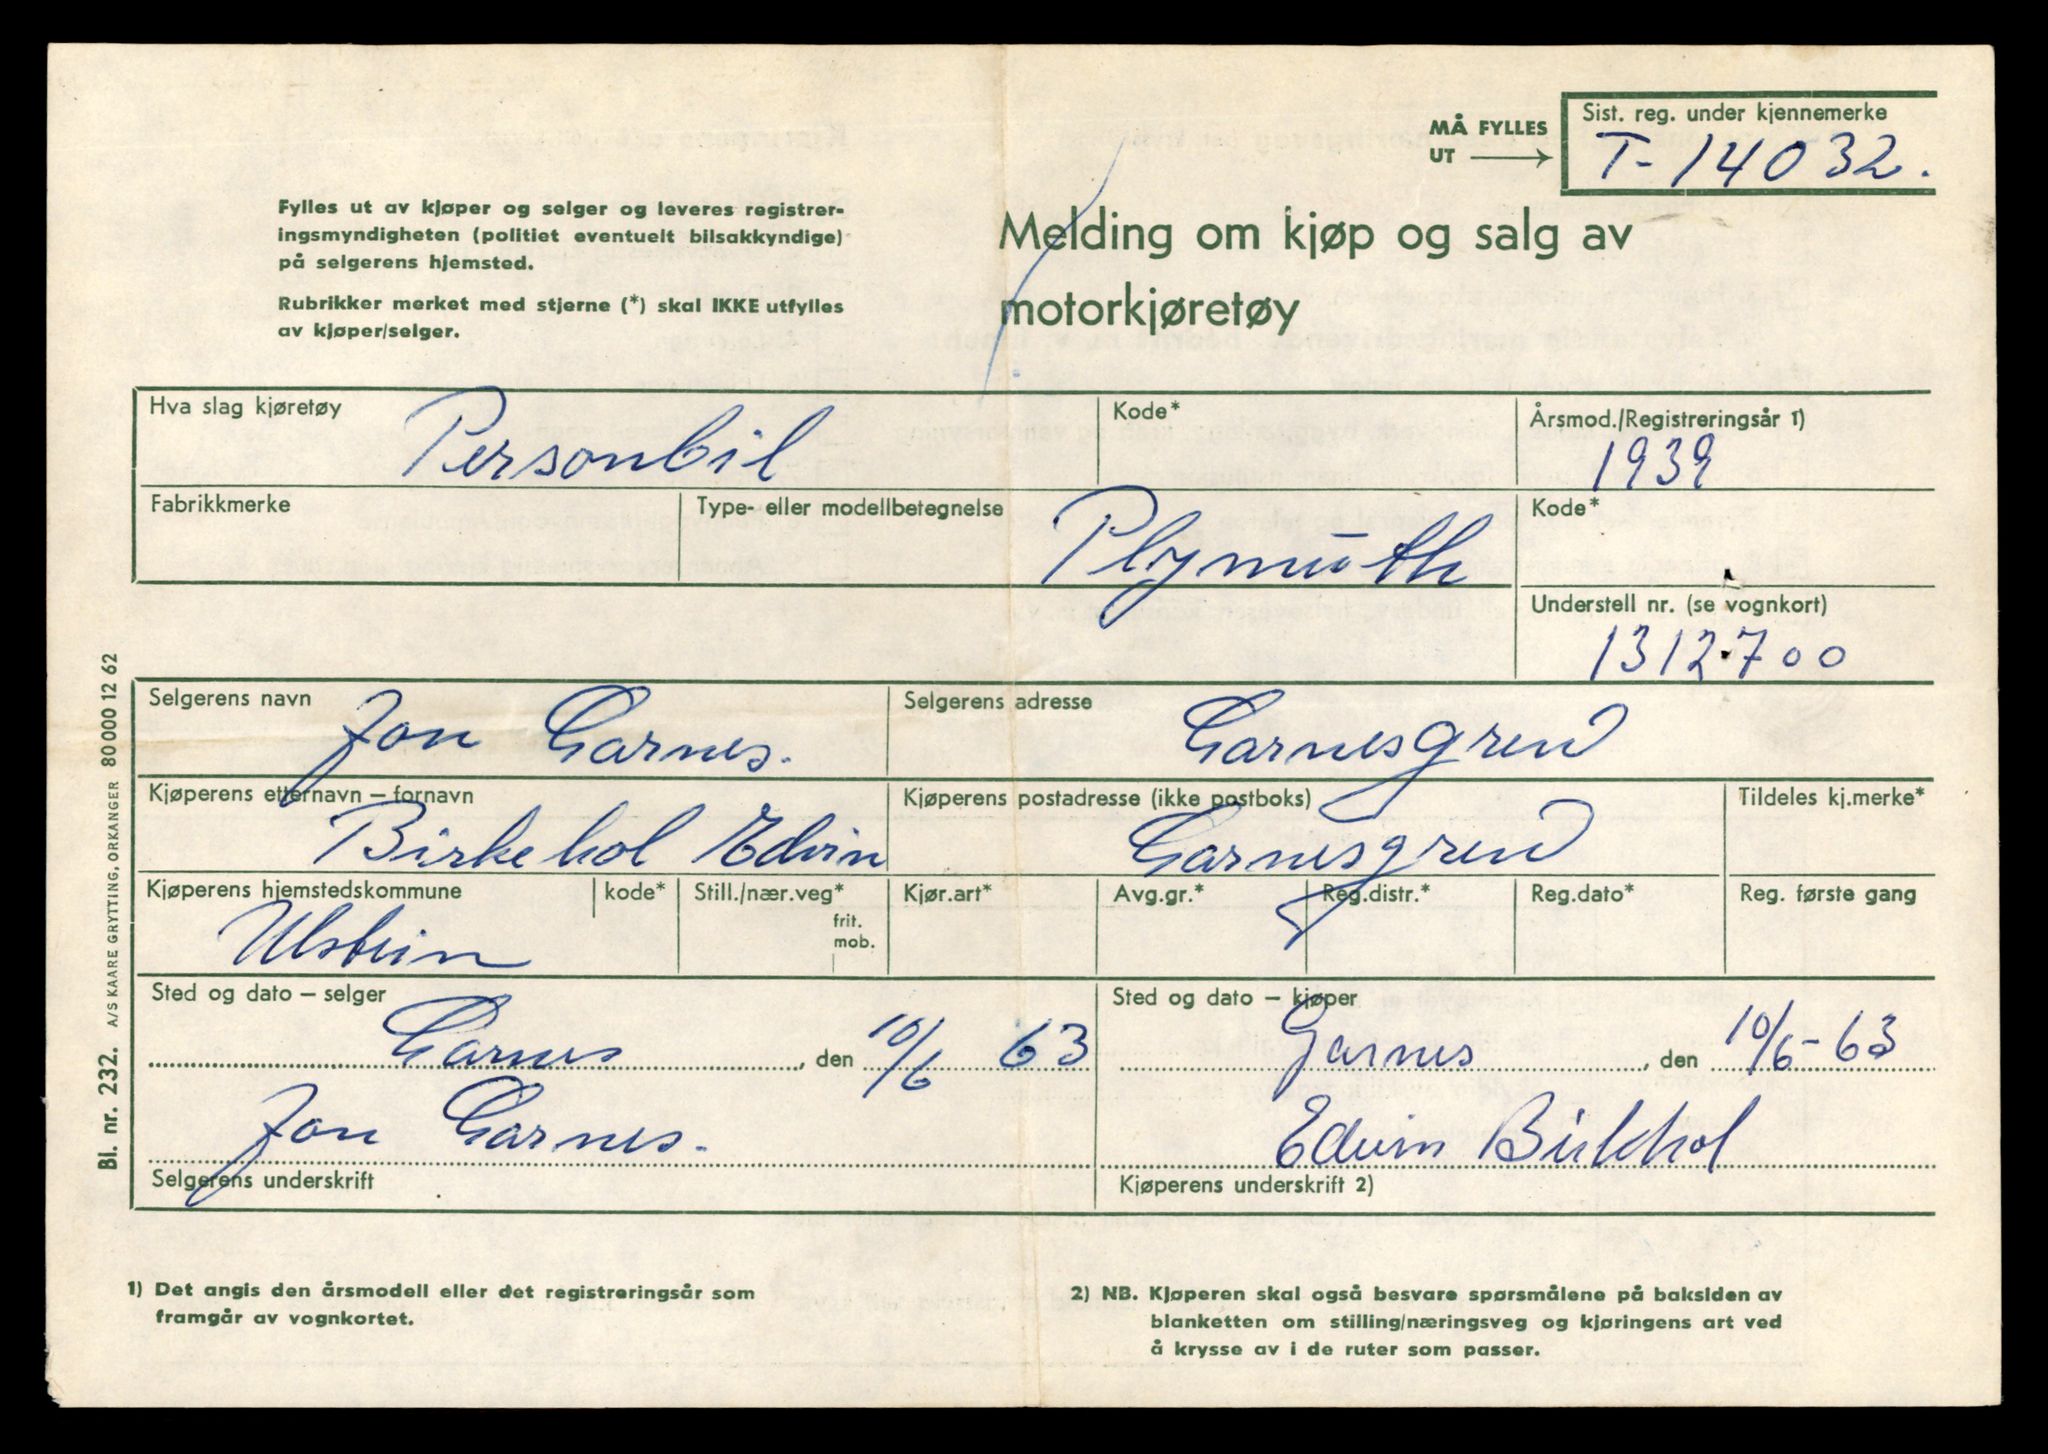 MÅ FYLLES
UT
Sist. reg. under kjennemerke
T-14032.
Fylles ut av kjøper og selger og leveres registrer-
ingsmyndigheten (politiet eventuelt bilsakkyndige)
på selgerens hjemsted.
Rubrikker merket med stjerne (*) skal IKKE utfylles
av kjøper/selger.
Melding om kjøp og salg av
motorkjøretøy
Hva slag kjøretøy
Personbil
Kode*
Årsmod./Registreringsår 1)
1939
Fabrikkmerke
Type- eller modellbetegnelse
Plymuth
Kode*
Understell nr. (se vognkort)
1312700
Selgerens navn
Jon Garnes.
Selgerens adresse
Garnesgrend
Kjøperens etternavn – fornavn
Birkehol Edvin
Kjøperens postadresse (ikke postboks)
Garnesgrend
Tildeles kj.merke*
Kjøperens hjemstedskommune
Ulstein
kode*
Still./nær.veg*
frit.
mob.
Kjør.art*
Avg.gr.*
Reg.distr.*
Reg.dato*
Reg. første gang
Sted og dato – selger
Garnes, den 10/6 63
Jon Garnes.
Selgerens underskrift
Sted og dato – kjøper
Garnes, den 10/6-63
Edvin Birkhol
Kjøperens underskrift 2)
1) Det angis den årsmodell eller det registreringsår som
framgår av vognkortet.
2) NB. Kjøperen skal også besvare spørsmålene på baksiden av
blanketten om stilling/næringsveg og kjøringens art ved
å krysse av i de ruter som passer.
Bl. nr. 232. A/S KAARE GRYTTING, ORKANGER 80 000 12 62